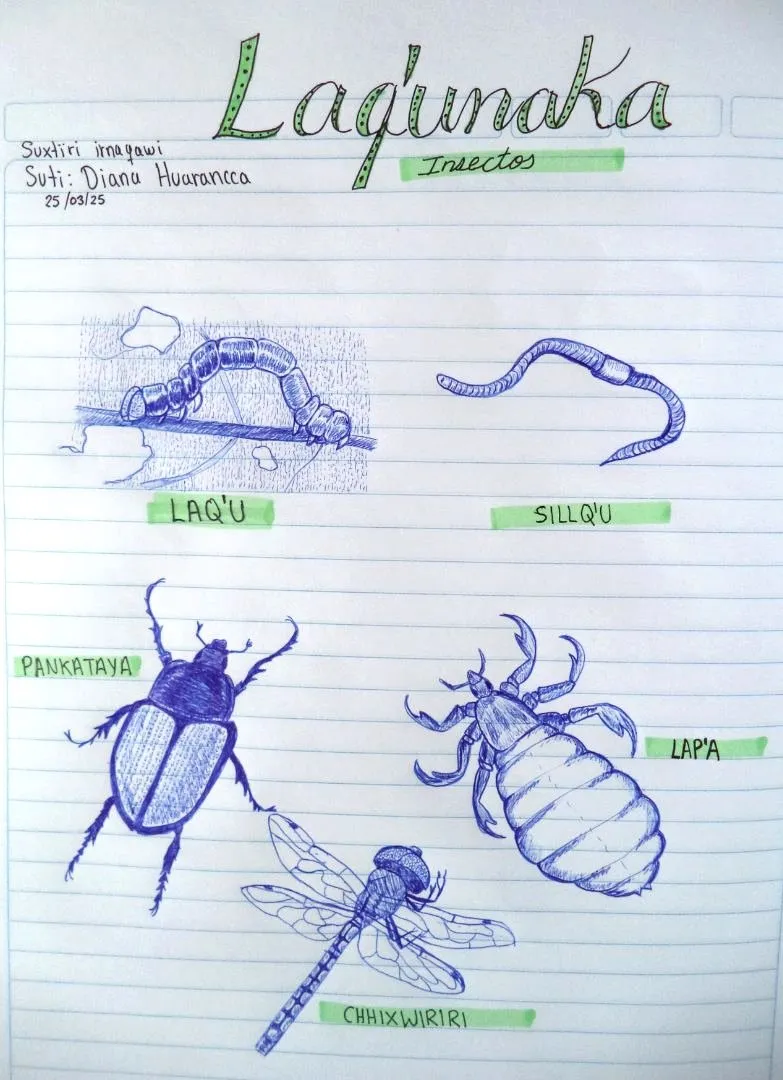 Laq'unaka
Insectos
Suxtiri irnaqawi
Suti: Diana Huarancca
25/03/25
LAQ'U
SILLQ'U
PANKATAYA
LAP'A
CHHIXWIRIRI